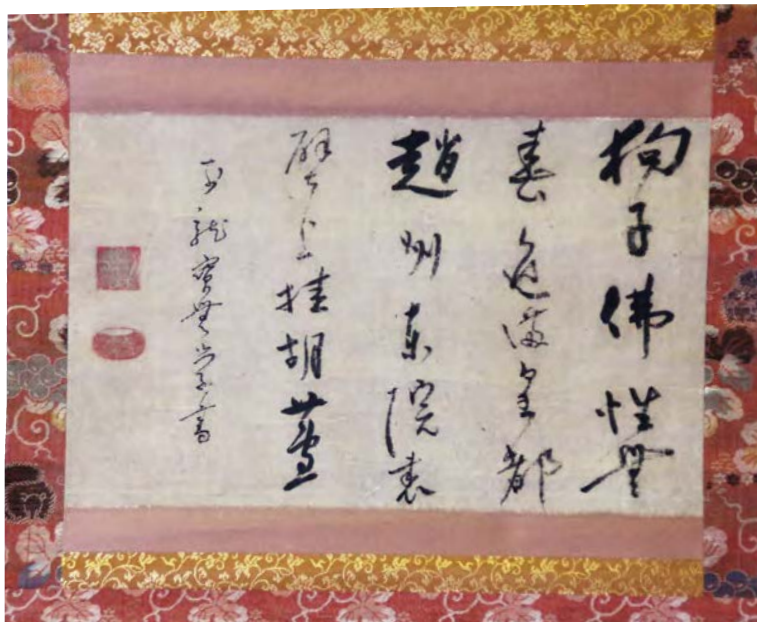 狗子佛性無
春色滿皇都
趙州東院裏
壁上挂胡蘆
龍 無 書